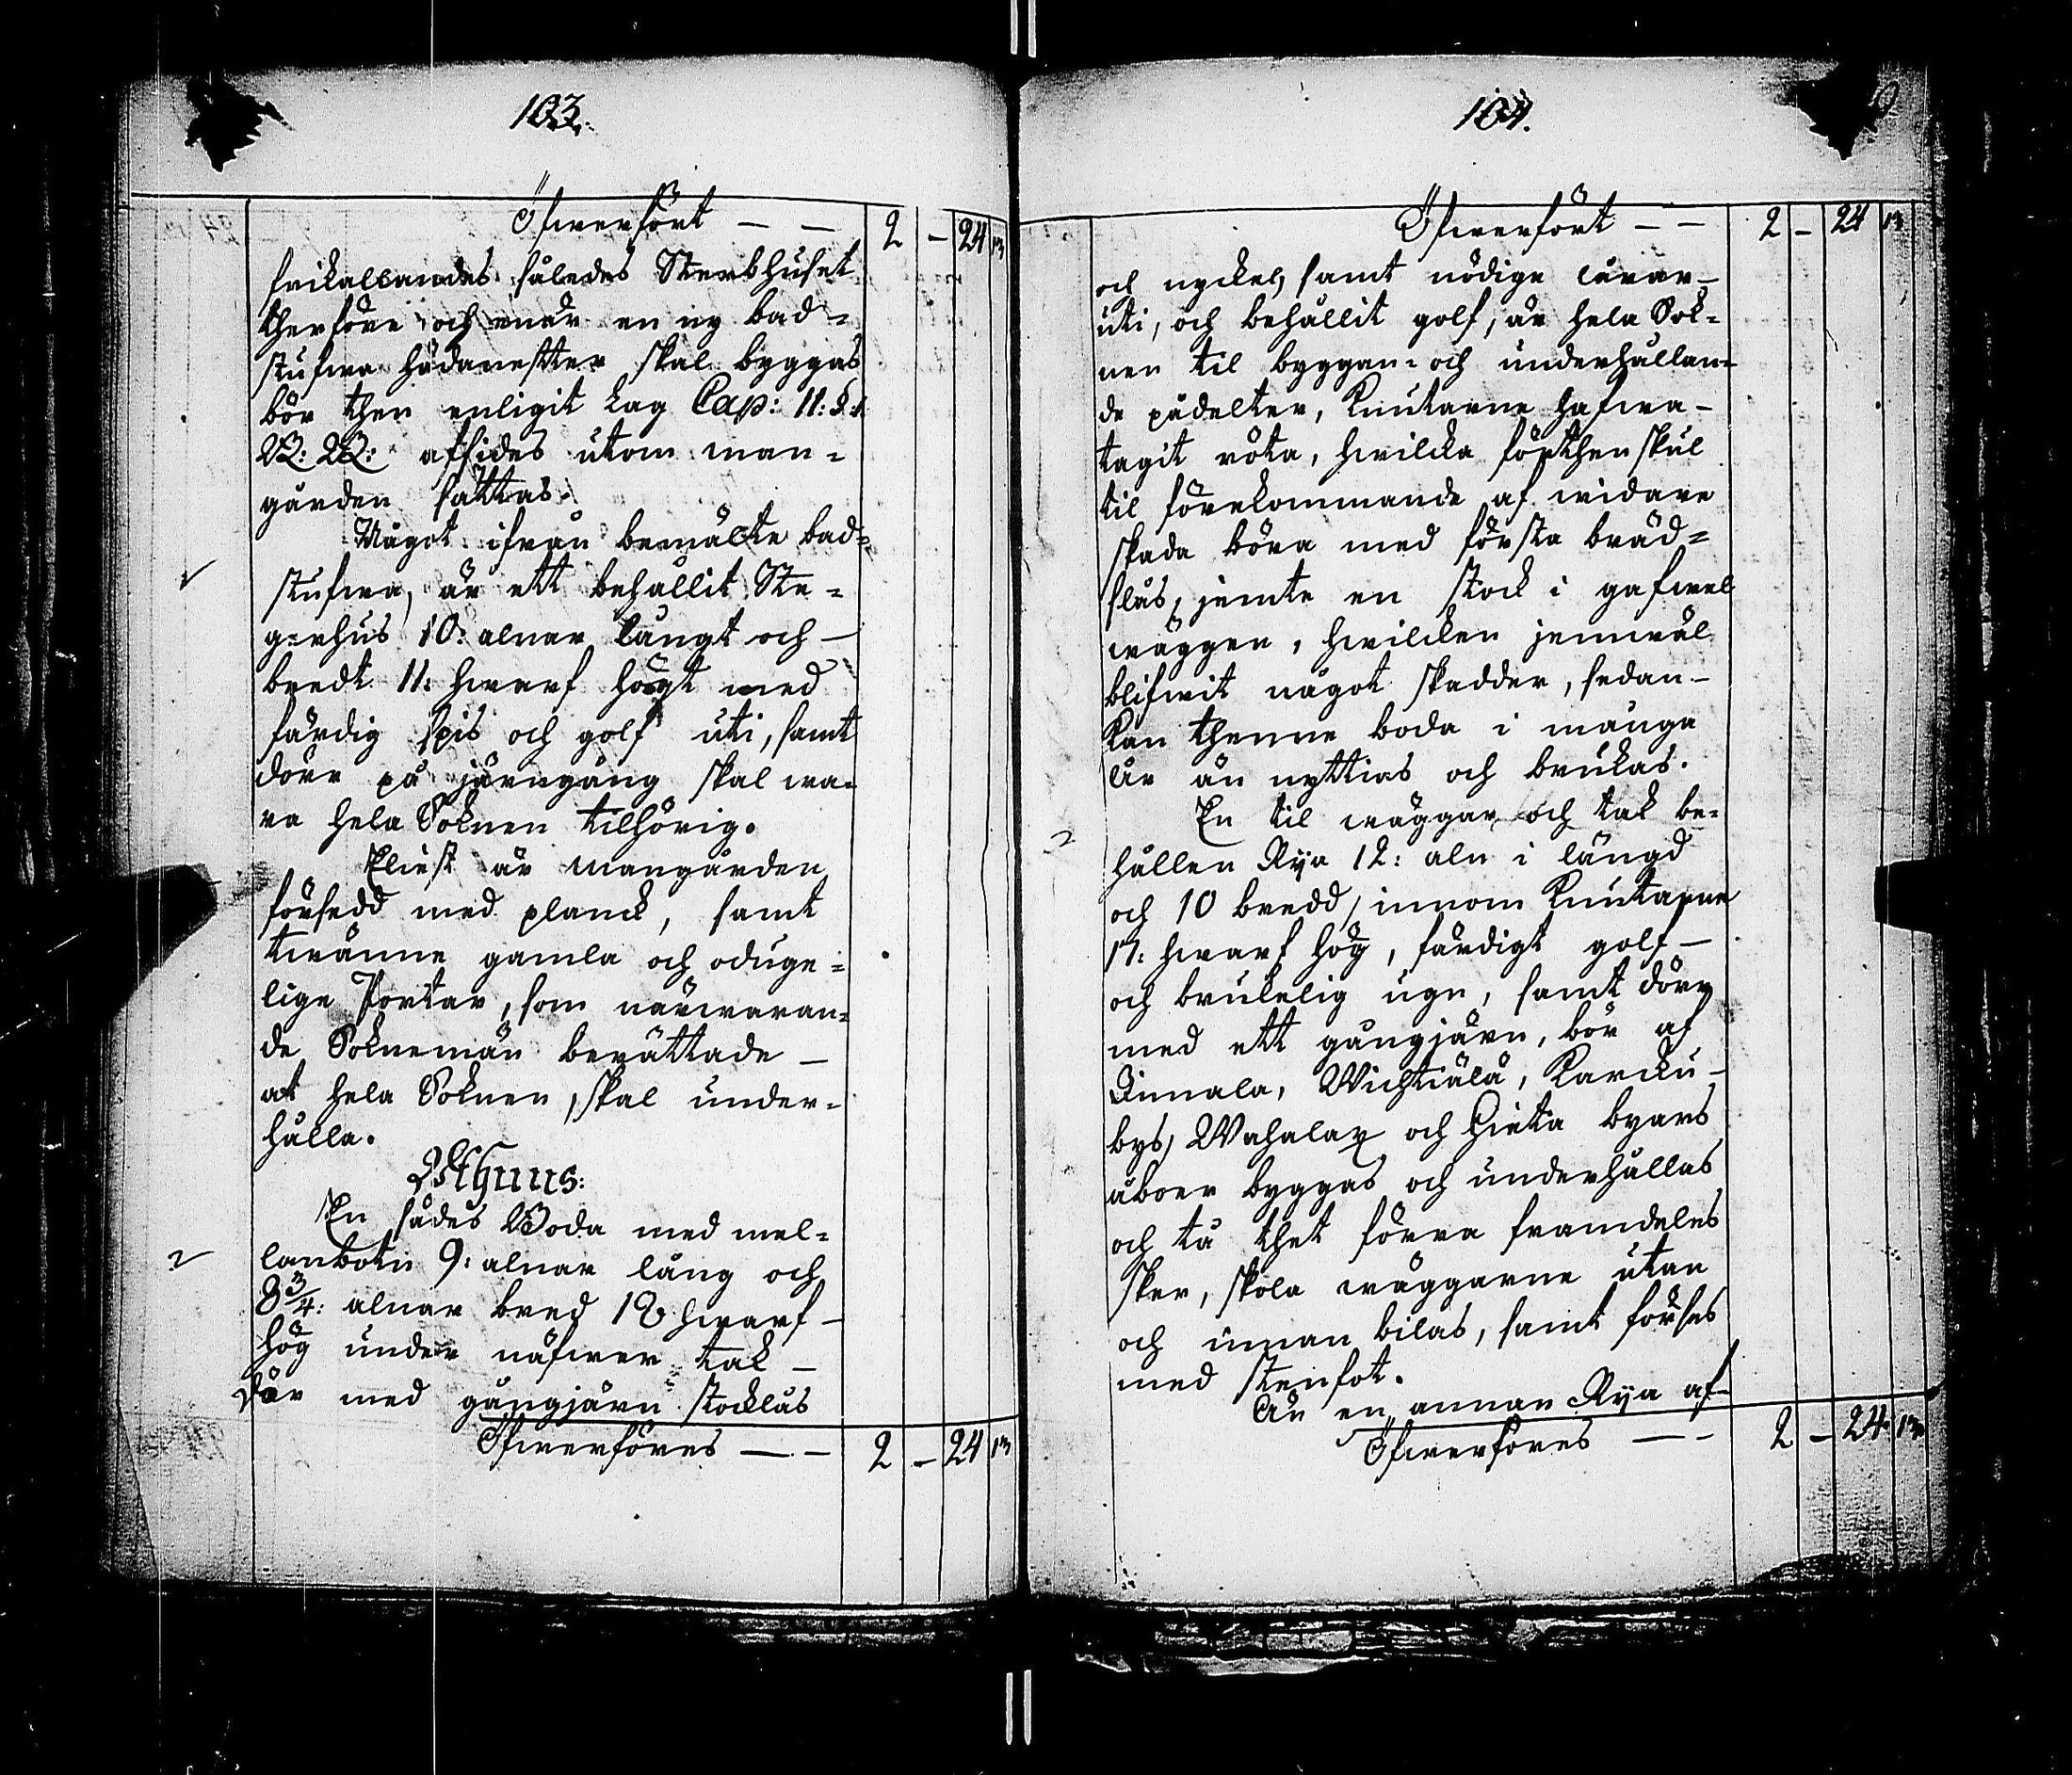 103.
Öfwerfört — — 2 — 24 13
frikallandes således Sterbhuset
therföre och enär en ny bad=
stufwa hädanefter skal byggas
bör then enligit Lag Cap: 11: §:
B: B: afsides utom man=
gården sättas.
Något ifrån bemälte bad=
stufwa, är ett behållit Ste=
gerhus 10: alnar långt och —
bredt 11: hwarf högt med
färdig spis och golf uti, samt
dörr på järngång skal wa=
ra hela Soknen tilhörig.
Eliest är mangården
försedd med planck, samt
twänne gamla och oduge=
lige Portar, som närwaran=
de Soknemän berättade —
at hela Soknen, skal under=
hålla.
Uthuus:
En sädes Boda med mel=
lanbotn 9: alnar lång och
8 3/4: alnar bred 18 hwarf —
hög under näfwer tak —
dör med gångjärn stocklås
Öfwerföres — — 2 — 24 13
104.
Öfwerfört — — 2 — 24 13
och nyckel, samt nödige lårar —
uti, och behållit golf, är hela Sok=
nen til byggan= och underhållan=
de pådelter, Knutarne hafwa —
tagit röta, hwilcka förthenskul
til förekommande af widare
skada böra med första bräd=
slås, jemte en stock i gafwel
wäggen, hwilcken jemwäl
blifwit något skadder, sedan —
Kan thenne boda i många
år än nyttias och brukas.
En til wäggar och tak be=
hållen Rya 12: aln i längd
och 10 bredd, innom Knutarne
17: hwarf hög, färdigt golf —
och brukelig ugn, samt dörr
med ett gångjärn, bör af
Kinnala, Wichtiälä, Karcku —
bys, Wahalax och Hieta byars
åboer byggas och underhållas
och tå thet förra framdeles
sker, skola wäggarne utan
och innan bilas, samt förses
med stenfot.
Än en annan Rya af —
Öfwerföres — — 2 — 24 13